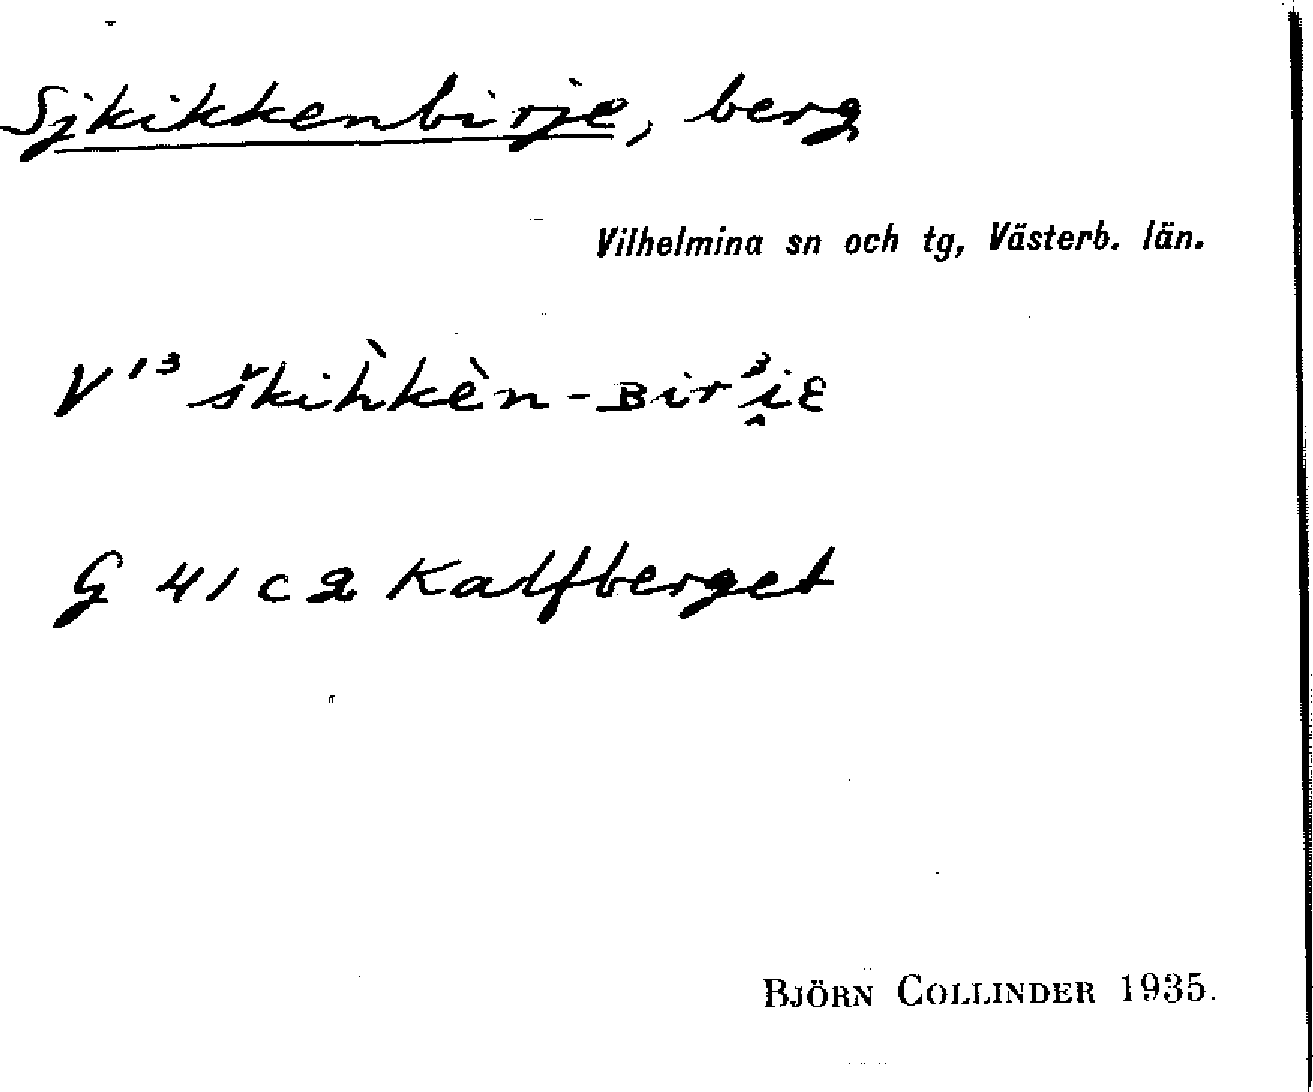 Sjkikkenbirje, berg
Vilhelmina sn och tg, Västerb. län.
V¹³ ških̀kèn-ʙir³i̯ɛ
G 41 c 2 Kalfberget
BJÖRN COLLINDER 1935.